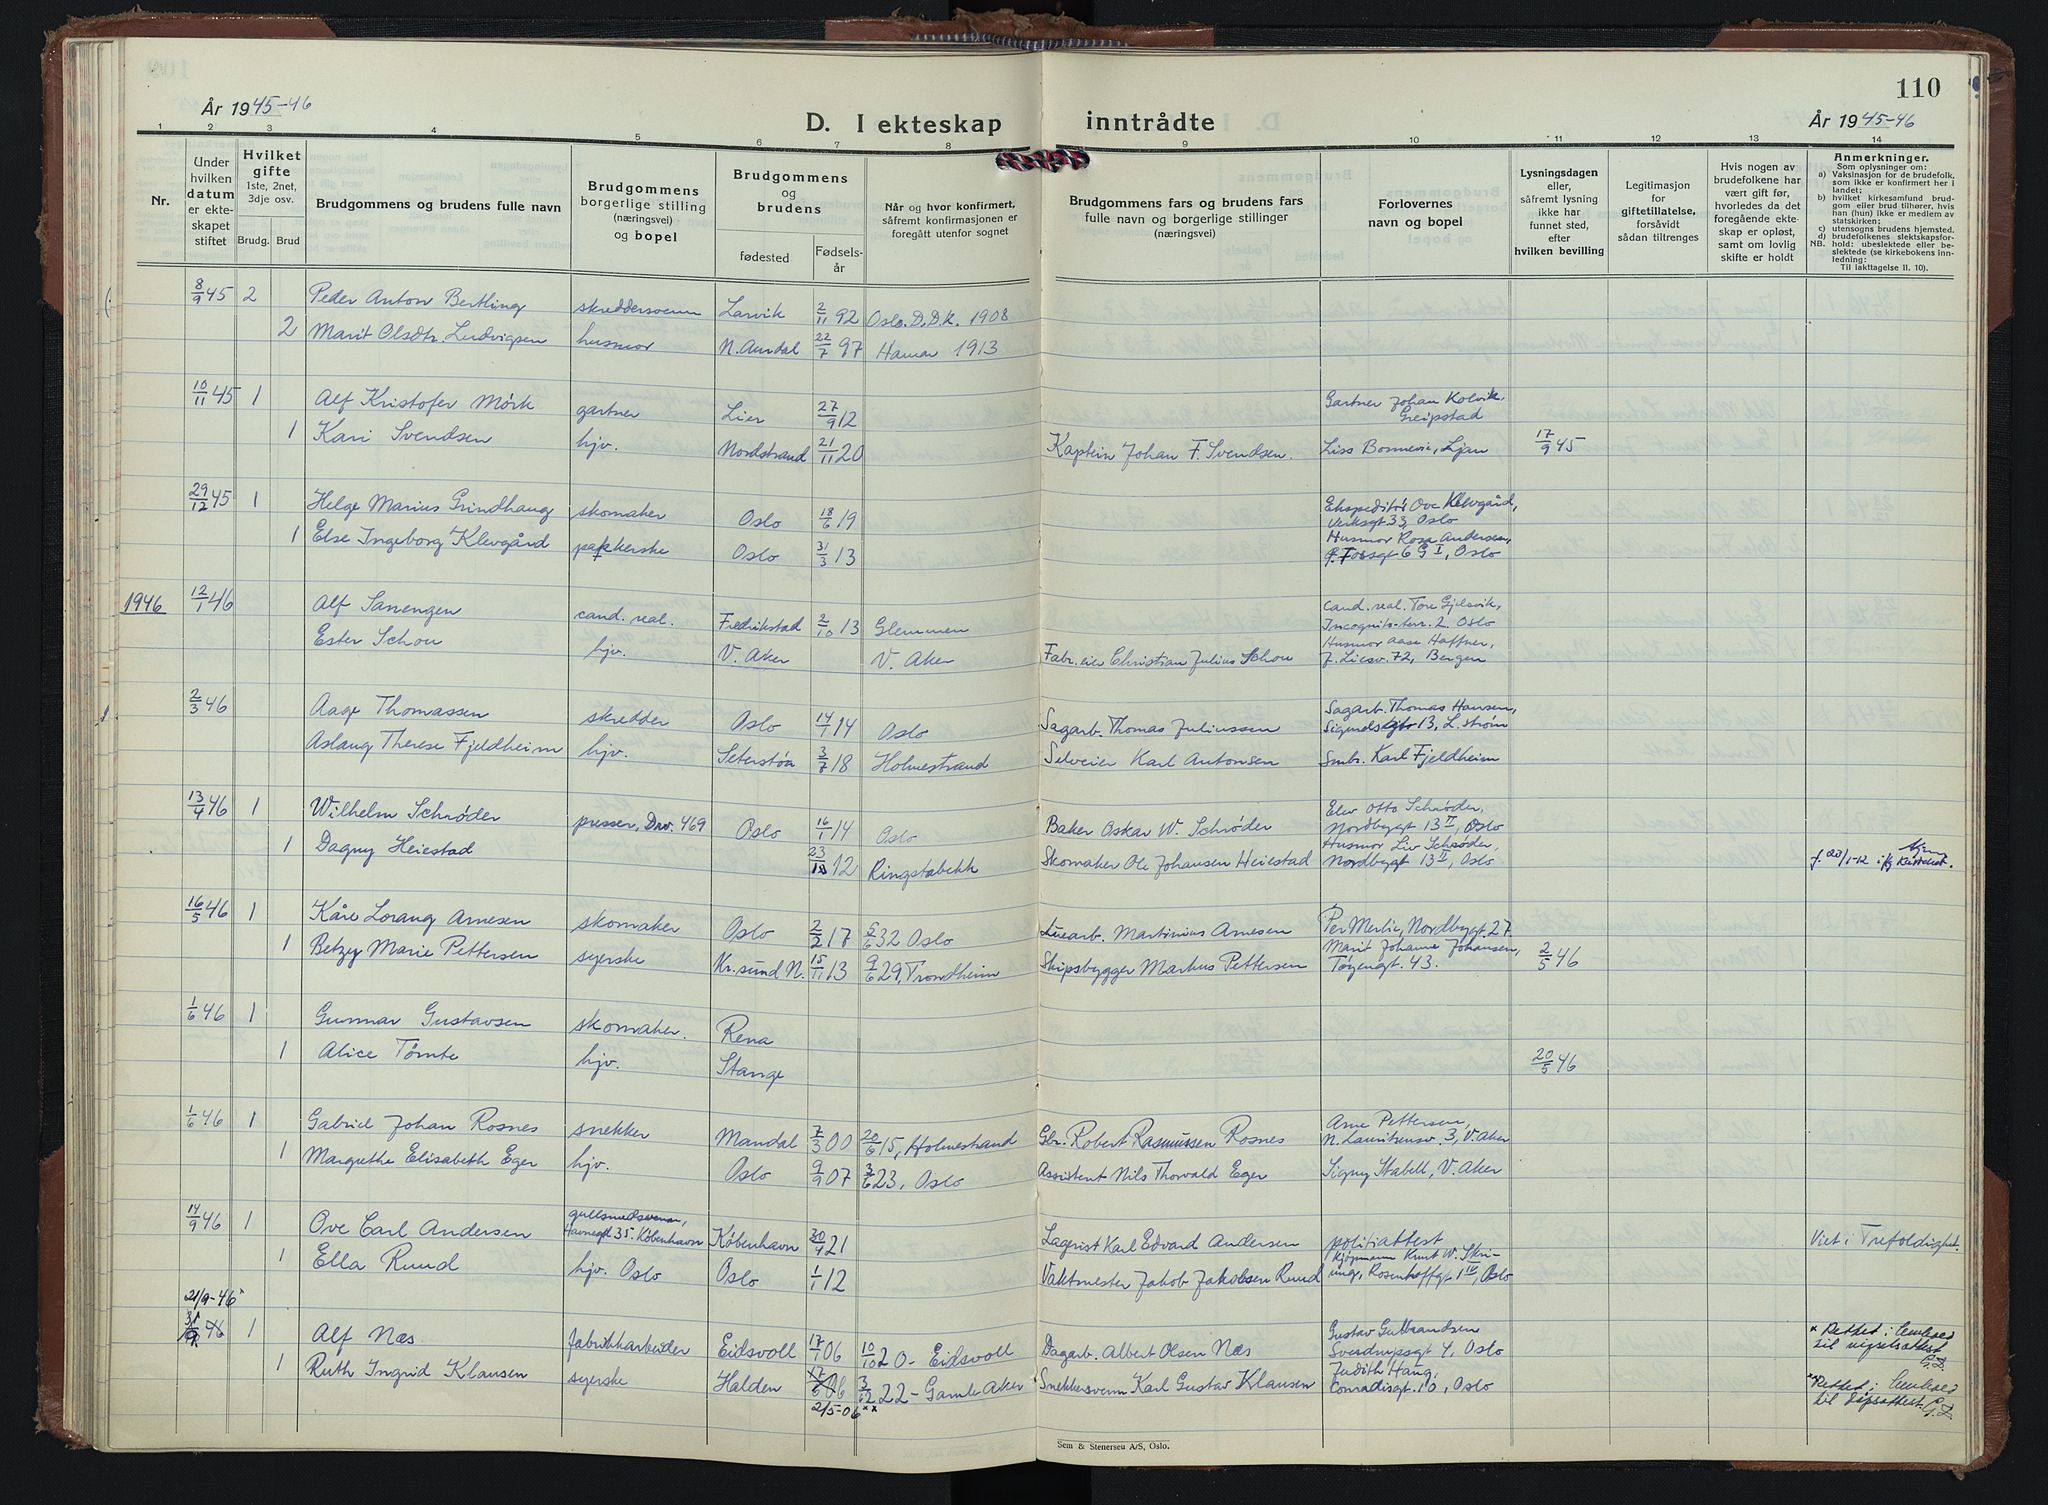 110
År 1945-46
D. I ekteskap inntrådte
År 1945-46
1 2 3 4 5 6 7 8 9 10 11 12 13 14
Nr.
Under hvilken datum er ekteskapet stiftet
Hvilket gifte 1ste, 2net, 3dje osv.
Brudg. Brud
Brudgommens og brudens fulle navn
Brudgommens borgerlige stilling (næringsvei) og bopel
Brudgommens og brudens
fødested Fødsels-år
Når og hvor konfirmert, såfremt konfirmasjonen er foregått utenfor sognet
Brudgommens fars og brudens fars fulle navn og borgerlige stillinger (næringsvei)
Forlovernes navn og bopel
Lysningsdagen eller, såfremt lysning ikke har funnet sted, efter hvilken bevilling
Legitimasjon for giftetillatelse, forsåvidt sådan tiltrenges
Hvis nogen av brudefolkene har vært gift før, hvorledes da det foregående ekteskap er opløst, samt om lovlig skifte er holdt
Anmerkninger.
Som oplysninger om:
a) Vaksinasjon for de brudefolk, som ikke er konfirmert her i landet;
b) hvilket kirkesamfund brudgom eller brud tilhører, hvis han (hun) ikke er medlem av statskirken;
c) utensogns brudens hjemsted.
d) brudefolkenes slektskapsforhold: ubeslektede eller beslektede (se kirkebokens innledning:
NB.
Til iakttagelse II. 10).
8/9 45 2 Peder Anton Bertling skreddersvenn Larvik 2/11 92 Oslo. D.D.K. 1908
2 Marit Olsdtr. Ludvigsen husmor N. Aurdal 22/7 97 Hamar 1913
10/11 45 1 Alf Kristofer Mörk gartner Lier 27/9 12 Gartner Johan Kolvik, Greipstad
1 Kari Svendsen hjv. Nordstrand 21/11 20 Kaptein Johan F. Svendsen. Liss Bonnevie, Ljan 17/9 45
29/12 45 1 Helge Marius Grindhaug skomaker Oslo 18/6 19 Ekspeditör Ove Klevgård, Verksgt. 33, Oslo
1 Else Ingeborg Klevgård pakkerske Oslo 31/3 13 Husmor Rosa Andersen, 6 G I, Oslo
1946 12/1 46 Alf Sanengen cand. real. Fredrikstad 2/10 13 Glemmen Cand. real. Tore Gjelsvik, Incognito-terr. 2. Oslo
Ester Schou hjv. V. Aker V. Aker Fabr.eier Christian Julius Schou Husmor Aase Haffner, J. Liesv. 72, Bergen
2/3 46 Aage Thomassen skredder Oslo 14/1 14 Oslo Sagarb. Thomas Juliussen Sagarb. Thomas Hansen, 13, L. strøm
Aslaug Therese Fjeldheim hjv. Seterstøa 3/7 18 Holmestrand Selveier Karl Antonsen Smbr. Karl Fjeldheim
13/4 46 1 Wilhelm Schrøder presser, Drv. 469 Oslo 16/1 14 Oslo Baker Oskar W. Schrøder Elev Otto Schrøder, Nordbygt 13 II, Oslo
1 Dagny Heiestad 23/ 12 Ringstabekk Skomaker Ole Johansen Heiestad Husmor Liv Schrøder, Nordbygt 13 II, Oslo
16/5 46 1 Kåre Lorang Arnesen skomaker Oslo 2/2 17 5/6 32 Oslo Martinius Arnesen Per Merlie, Nordbygt 27.
1 Betzy Marie Pettersen syerske Kr.sund N. 15/11 13 9/6 29, Trondheim Skipsbygger Markus Pettersen Marit Johanne Johansen, Tøyengt. 43. 2/5 46
1/6 46 1 Gunnar Gustavsen skomaker. Rena
1 Alice Tømte hjv. Stange 20/5 46
1/6 46 1 Gabriel Johan Rosnes snekker Mandal 7/3 00 20/6 15, Holmestrand Gbr. Robert Rasmussen Rosnes Arne Pettersen, N. Lauritzensv. 3, V. Aker
1 Margrethe Elisabeth Eger hjv. Oslo 9/9 07 3/6 23, Oslo Assistent Nils Thorvald Eger Signy Stabell, V. Aker
14/9 46 1 Ove Carl Andersen gullsmedsvenn, Havnegt 35. København København 30/4 21 Lagerist Karl Edvard Andersen politiattest Viet i Trefoldight.
1 Ella Ruud hjv. Oslo Oslo 1/1 12 Vaktmester Jakob Jakobsen Ruud kjøpmann Knut W. Skriung, Rosenhoffgt 1 IV, Oslo
21/9-46 x
1 Alf Næs fabrikkarbeider Eidsvoll 17/1 06 10/10 20- Eidsvoll Dagarb. Albert Olsen Næs Gustav Gulbrandsen Sverdrupsgt 4, Oslo x Rettet i henhold til vigselsattest G.L.
1 Ruth Ingrid Klausen syerske Halden 17/6 06 3/12 22- Gamle Aker Snekkersvenn Karl Gustav Klausen Judith Haug, Conradisgt. 10, Oslo xx Rettet i henhold til dåpsattest. G.L.
2/5-06 xx
Sem & Stenersen A/S, Oslo.